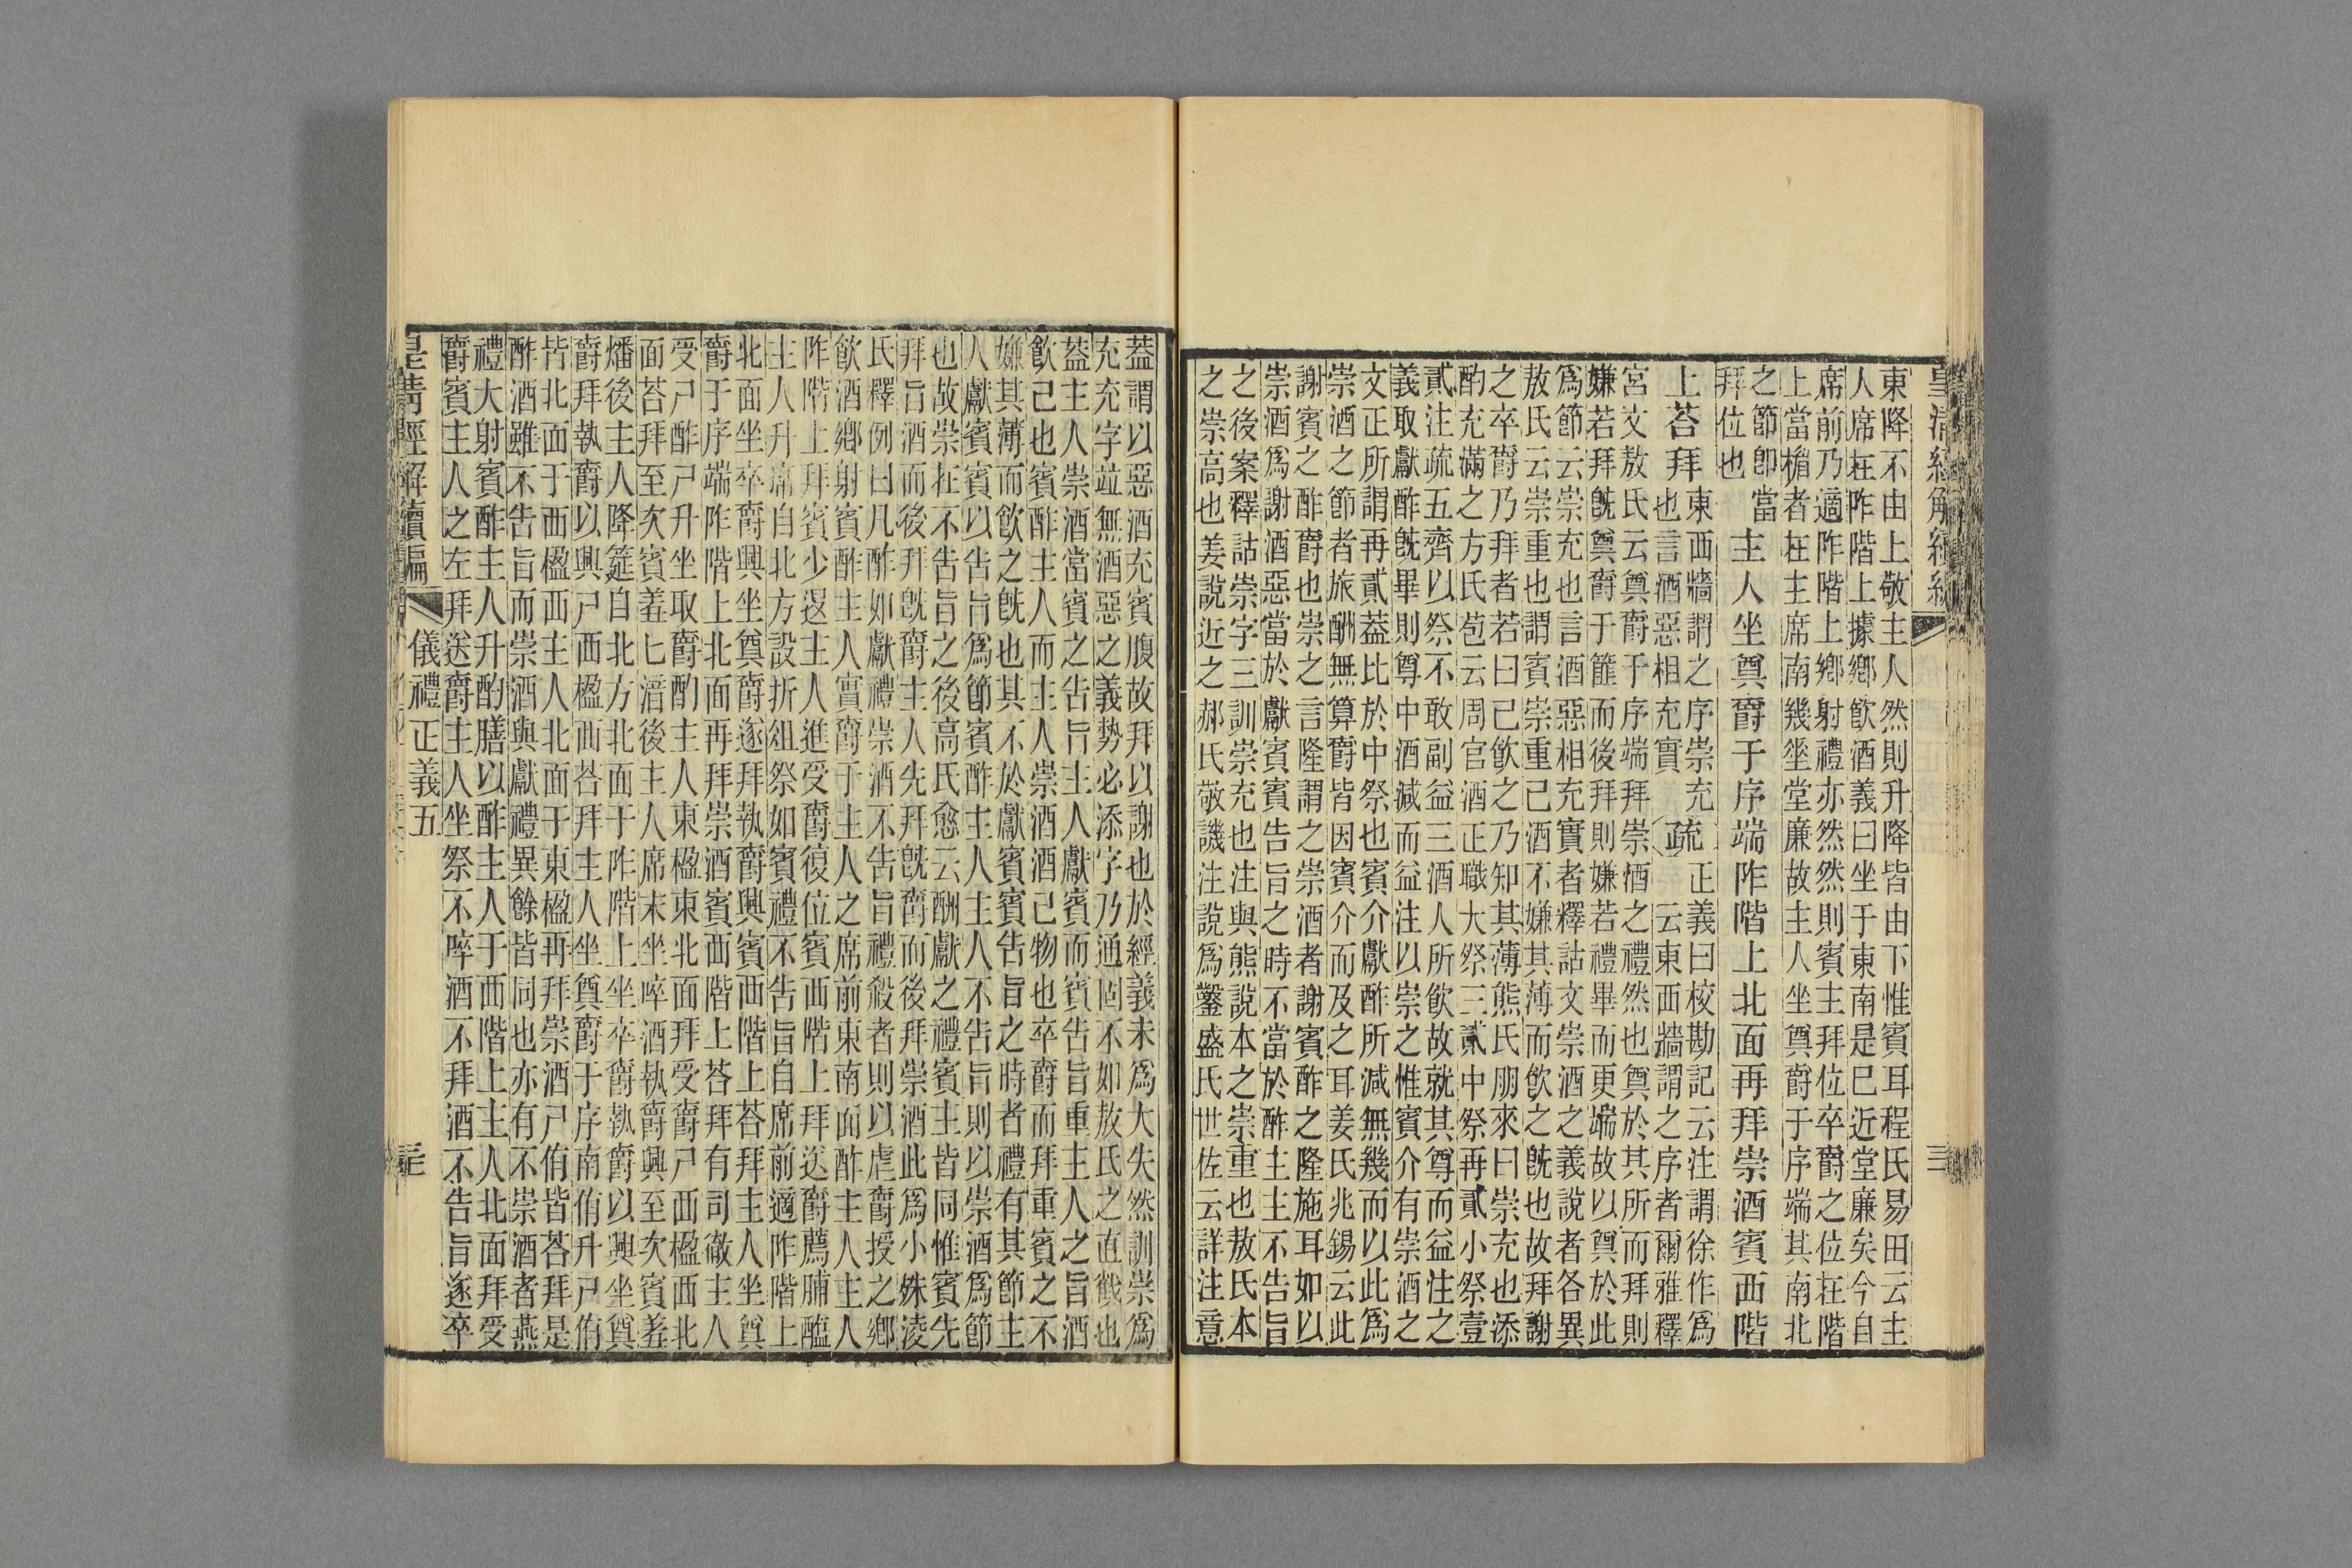 皇清經解續編
東降不由上敬主人然則升降皆由下惟賓耳程氏易田云主
人席在阼階上據鄉飲酒義曰坐于東南是已近堂廉矣今自
席前乃適阼階上鄉射禮亦然然則賓主拜位卒爵之位在階
上當楣者在主席南幾坐堂廉故主人坐奠爵于序端其南北
之節卽當
拜位也
主人坐奠爵于序端阼階上北面再拜崇酒賓西階
上荅拜
東西牆謂之序崇充
也言酒惡相充實
疏
正義曰校勘記云注謂徐作爲
云東西牆謂之序者爾雅釋
宮文敖氏云奠爵于序端拜崇酒之禮然也奠於其所而拜則
嫌若拜旣奠爵于篚而後拜則嫌若禮畢而更端故以奠於此
爲節云崇充也言酒惡相充實者釋詁文崇酒之義說者各異
敖氏云崇重也謂賓崇重已酒不嫌其薄而飲之旣也故拜謝
之卒爵乃拜者若曰已飲之乃知其薄熊氏朋來曰崇充也添
酌充滿之方氏苞云周官酒正職大祭三貳中祭再貳小祭壹
貳注疏五齊以祭不敢副益三酒人所飲故就其尊而益注之
義取獻酢旣畢則尊中酒減而益注以崇之惟賓介有崇酒之
文正所謂再貳葢比於中祭也賓介獻酢所減無幾而以此爲
崇酒之節者旅酬無算爵皆因賓介而及之耳姜氏兆錫云此
謝賓之酢爵也崇之言隆謂之崇酒者謝賓酢之隆施耳如以
崇酒爲謝酒惡當於獻賓賓告旨之時不當於酢主主不告旨
之後案釋詁崇字三訓崇充也注與熊說本之崇重也敖氏本
之崇高也姜說近之郝氏敬譏注說爲鑿盛氏世佐云詳注意
葢謂以惡酒充賓腹故拜以謝也於經義未爲大失然訓崇爲
充充字竝無酒惡之義勢必添字乃通固不如敖氏之直截也
葢主人崇酒當賓之告旨主人獻賓而賓告旨重主人之旨酒
飲己也賓酢主人而主人崇酒酒己物也卒爵而拜重賓之不
嫌其薄而飲之旣也其不於獻賓賓告旨之時者禮有其節主
人獻賓賓以告旨爲節賓酢主人主人不告旨則以崇酒爲節
也故崇在不告旨之後高氏愈云酬獻之禮賓主皆同惟賓先
拜旨酒而後拜旣爵主人先拜旣爵而後拜崇酒此爲小姝淩
氏釋例曰凡酢如獻禮崇酒不告旨禮殺者則以虛爵授之鄉
飲酒鄉射賓酢主人實爵于主人之席前東南面酢主人主人
阼階上拜賓少退主人進受爵復位賓西階上拜送爵薦脯醢
主人升席自北方設折俎祭如賓禮不告旨自席前適阼階上
北面坐卒爵興坐奠爵遂拜執爵興賓西階上荅拜主人坐奠
爵于序端阼階上北面再拜崇酒賓西階上荅拜有司徹主人
受尸酢尸升坐取爵酌主人東楹東北面拜受爵尸西楹西北
面荅拜至次賓羞匕湆後主人席末坐啐酒執爵興至次賓羞
燔後主人降筵自北方北面于阼階上坐卒爵執爵以興坐奠
爵拜執爵以興尸西楹西荅拜主人坐奠爵于序南侑升尸侑
皆北面于西楹西主人北面于東楹再拜崇酒尸侑皆荅拜是
酢酒雖不告旨而崇酒與獻禮異餘皆同也亦有不崇酒者燕
禮大射賓酢主人升酌膳以酢主人于西階上主人北面拜受
爵賓主人之左拜送爵主人坐祭不啐酒不拜酒不告旨遂卒
皇清經解續編 儀禮正義五